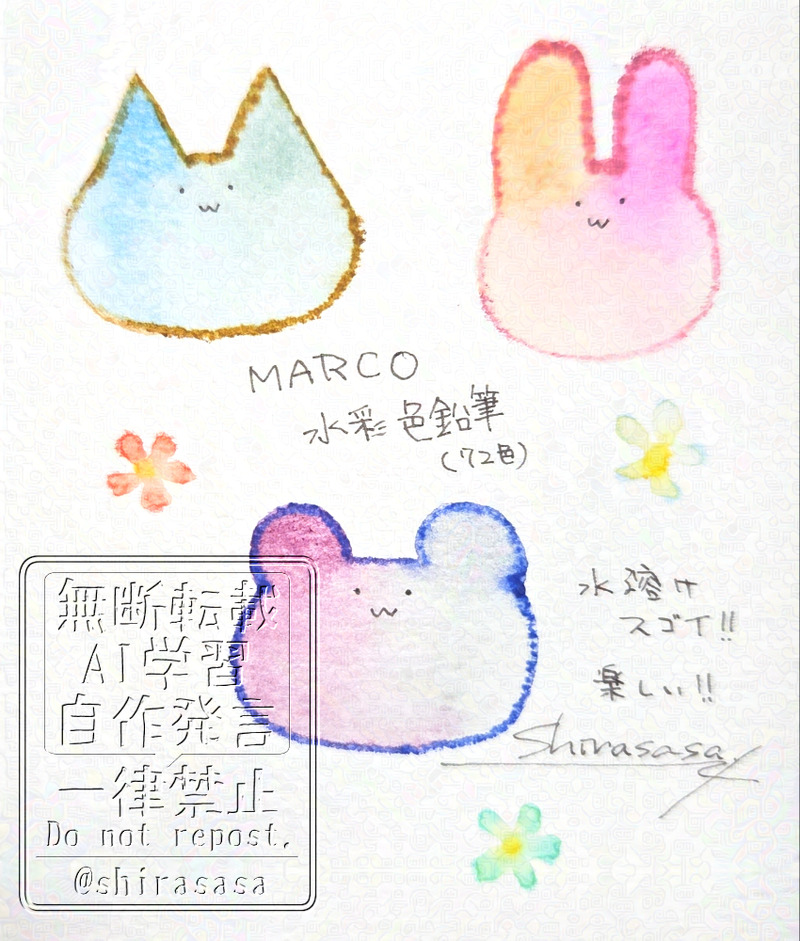 MARCO
水彩色鉛筆
(72色)
水溶け
スゴイ!!
楽しい!!
Shirasasa
無断転載
AI学習
自作発言
一律禁止
Do not repost.
@shirasasa